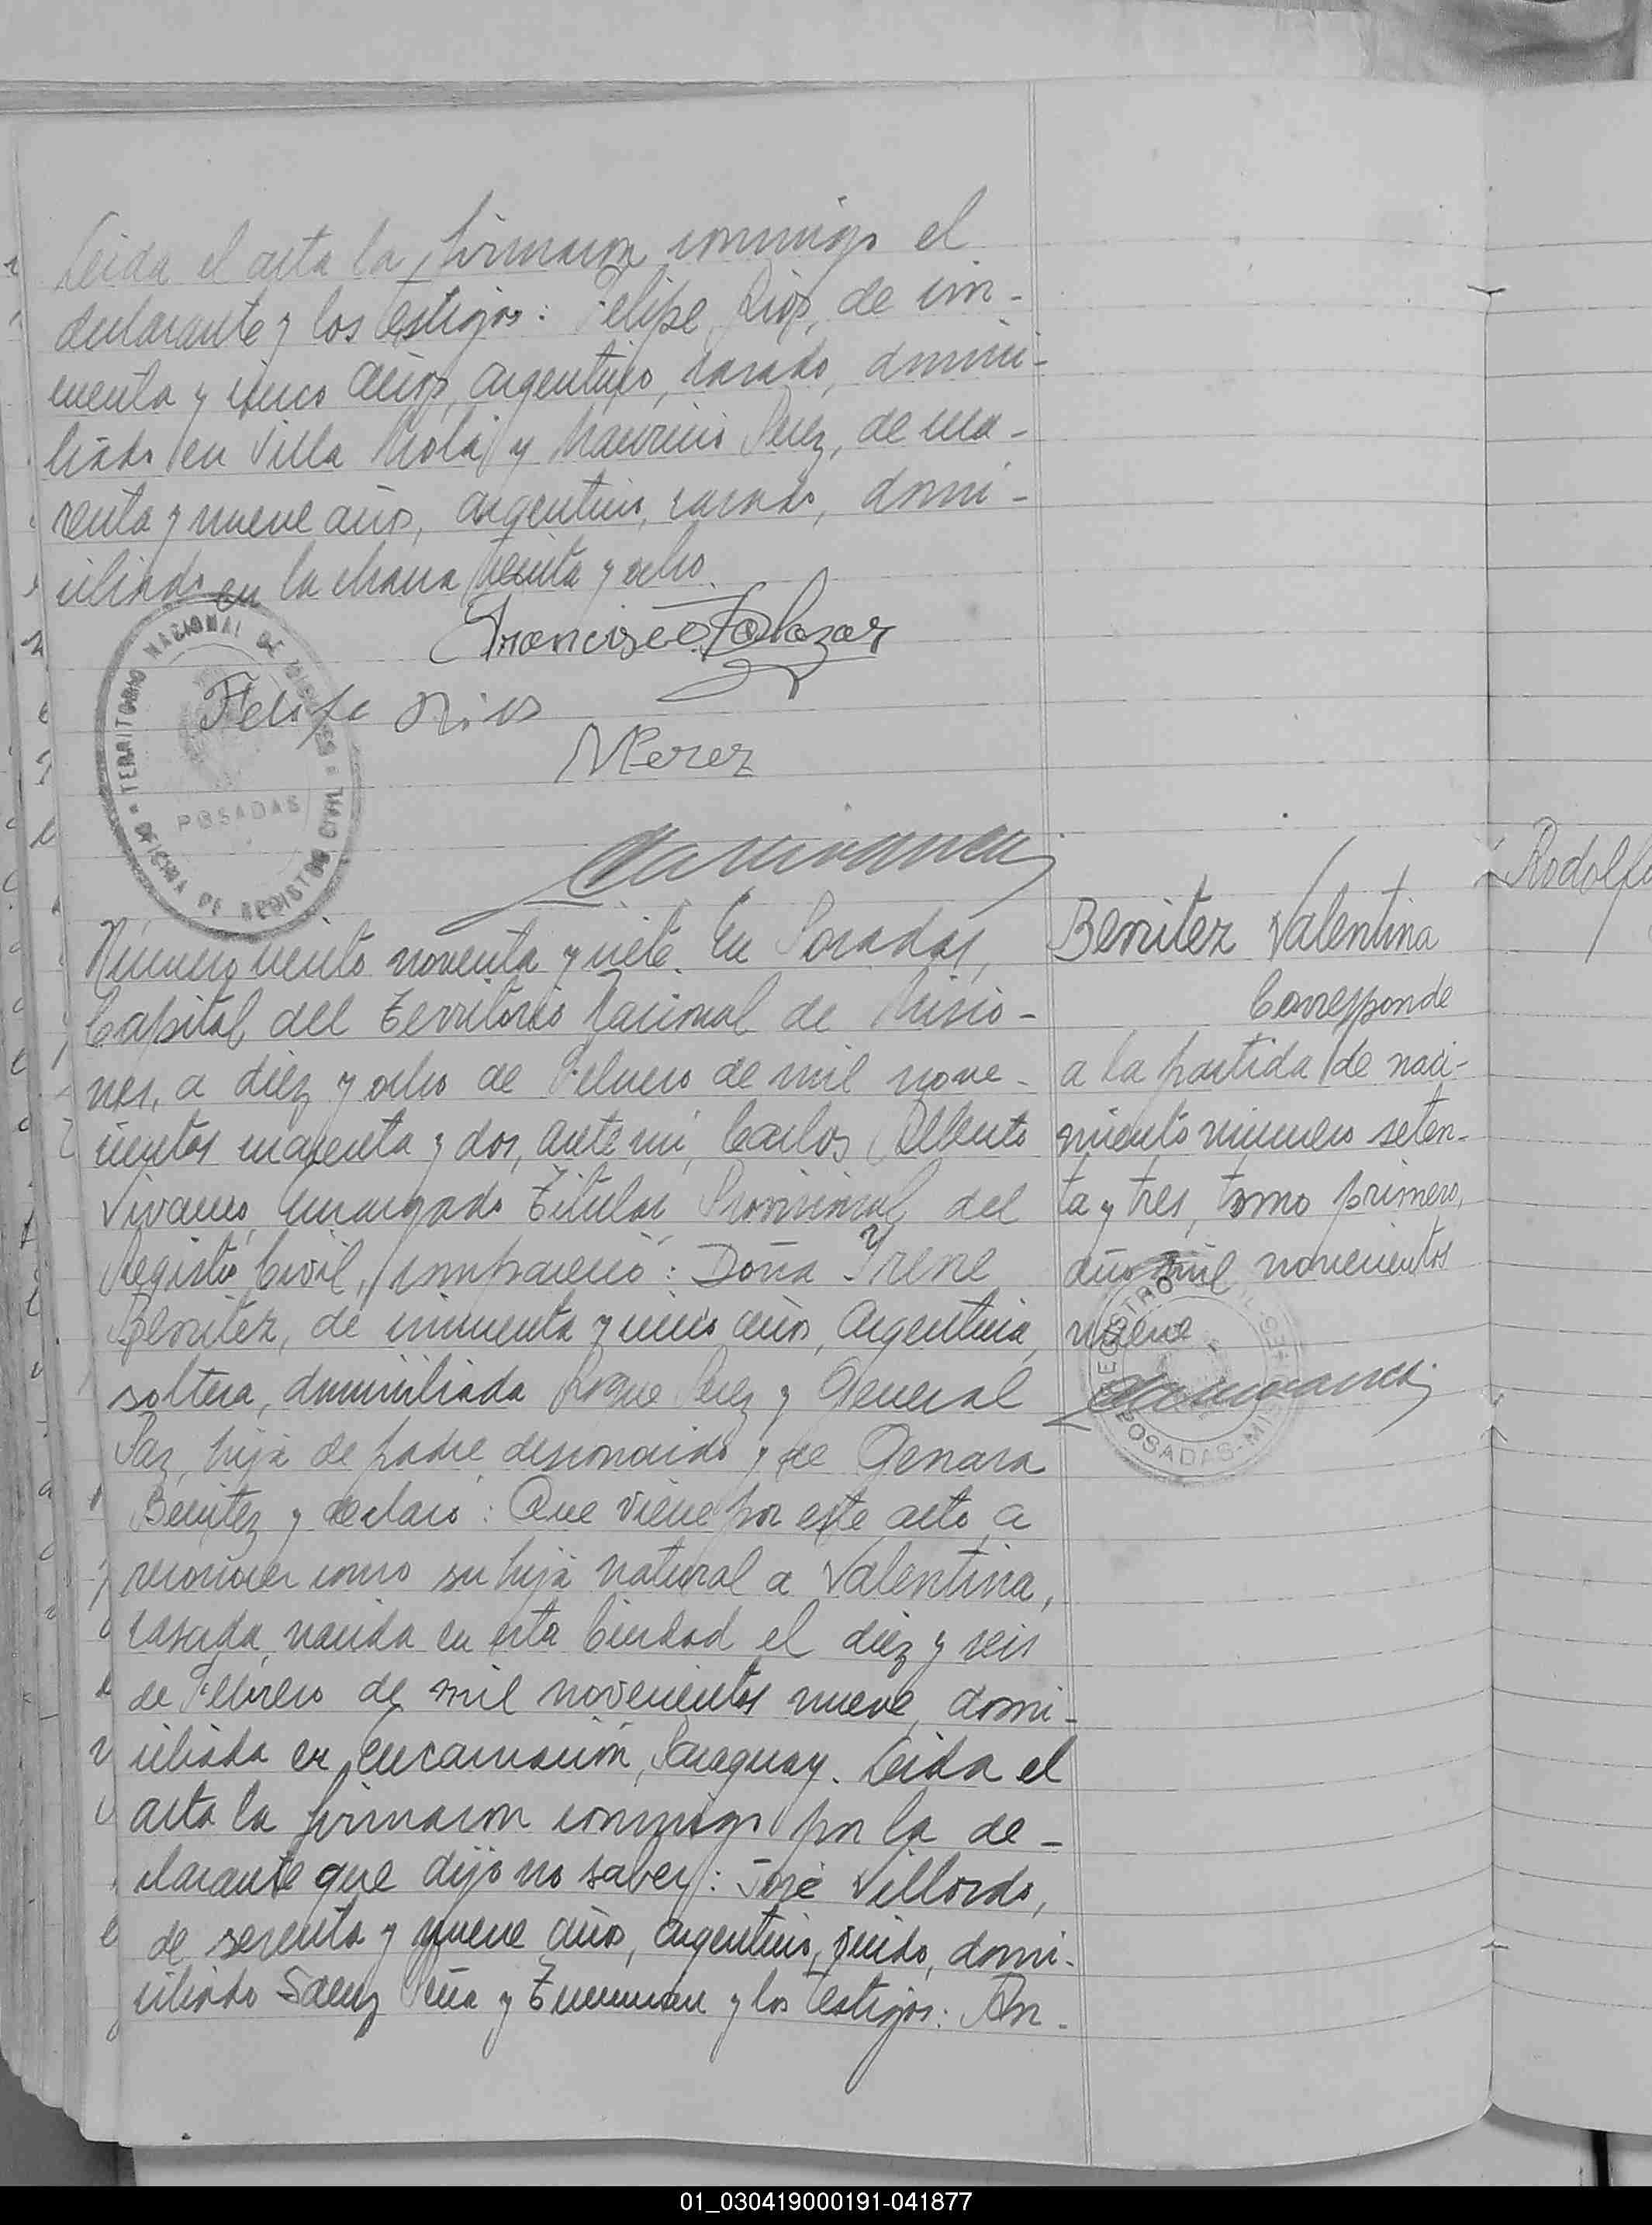 Leida el acta la firmaron conmigo el
declarante y los testigos: Felipe Rios, de cin-
cuenta y cinco años, argentino, casado, domici-
liado en Villa Mola y Mauricio Perez, de cua-
renta y nueve años, argentino, casado, domi-
ciliado en la chacra treinta y ocho.
Francisco Salazar
Felipe Rios
MPerez
TERRITORIO NACIONAL DE MISIONES
OFICINA DE REGISTRO CIVIL
POSADAS
Número ciento noventa y siete. En Posadas,
Capital del Territorio Nacional de Misio-
nes, a diez y ocho de Febrero de mil nove-
cientos cuarenta y dos, ante mí, Carlos Alberto
Vivanco, Encargado Titular Provisional del
Registro Civil, compareció: Doña Irene
Benitez, de cincuenta y cinco años, Argentina,
soltera, domiciliada Roque Perez y General
Paz, hija de padre desconocido y de Genara
Benitez y declaró: Que viene por este acto a
reconocer como su hija natural a Valentina,
casada, nacida en esta Ciudad el diez y seis
de Febrero de mil novecientos nueve, domi-
ciliada en Encarnación, Paraguay. Leida el
acta la firmaron conmigo por la de-
clarante que dijo no saber: José Villordo,
de sesenta y nueve años, argentino, viudo, domi-
ciliado Saenz Peña y Tucuman y los testigos: An-
Benitez Valentina
Corresponde
a la partida de naci-
miento número seten-
ta y tres, tomo primero,
año mil novecientos
nueve
REGISTRO
POSADAS-MIS
Rodolfo
01_030419000191-041877